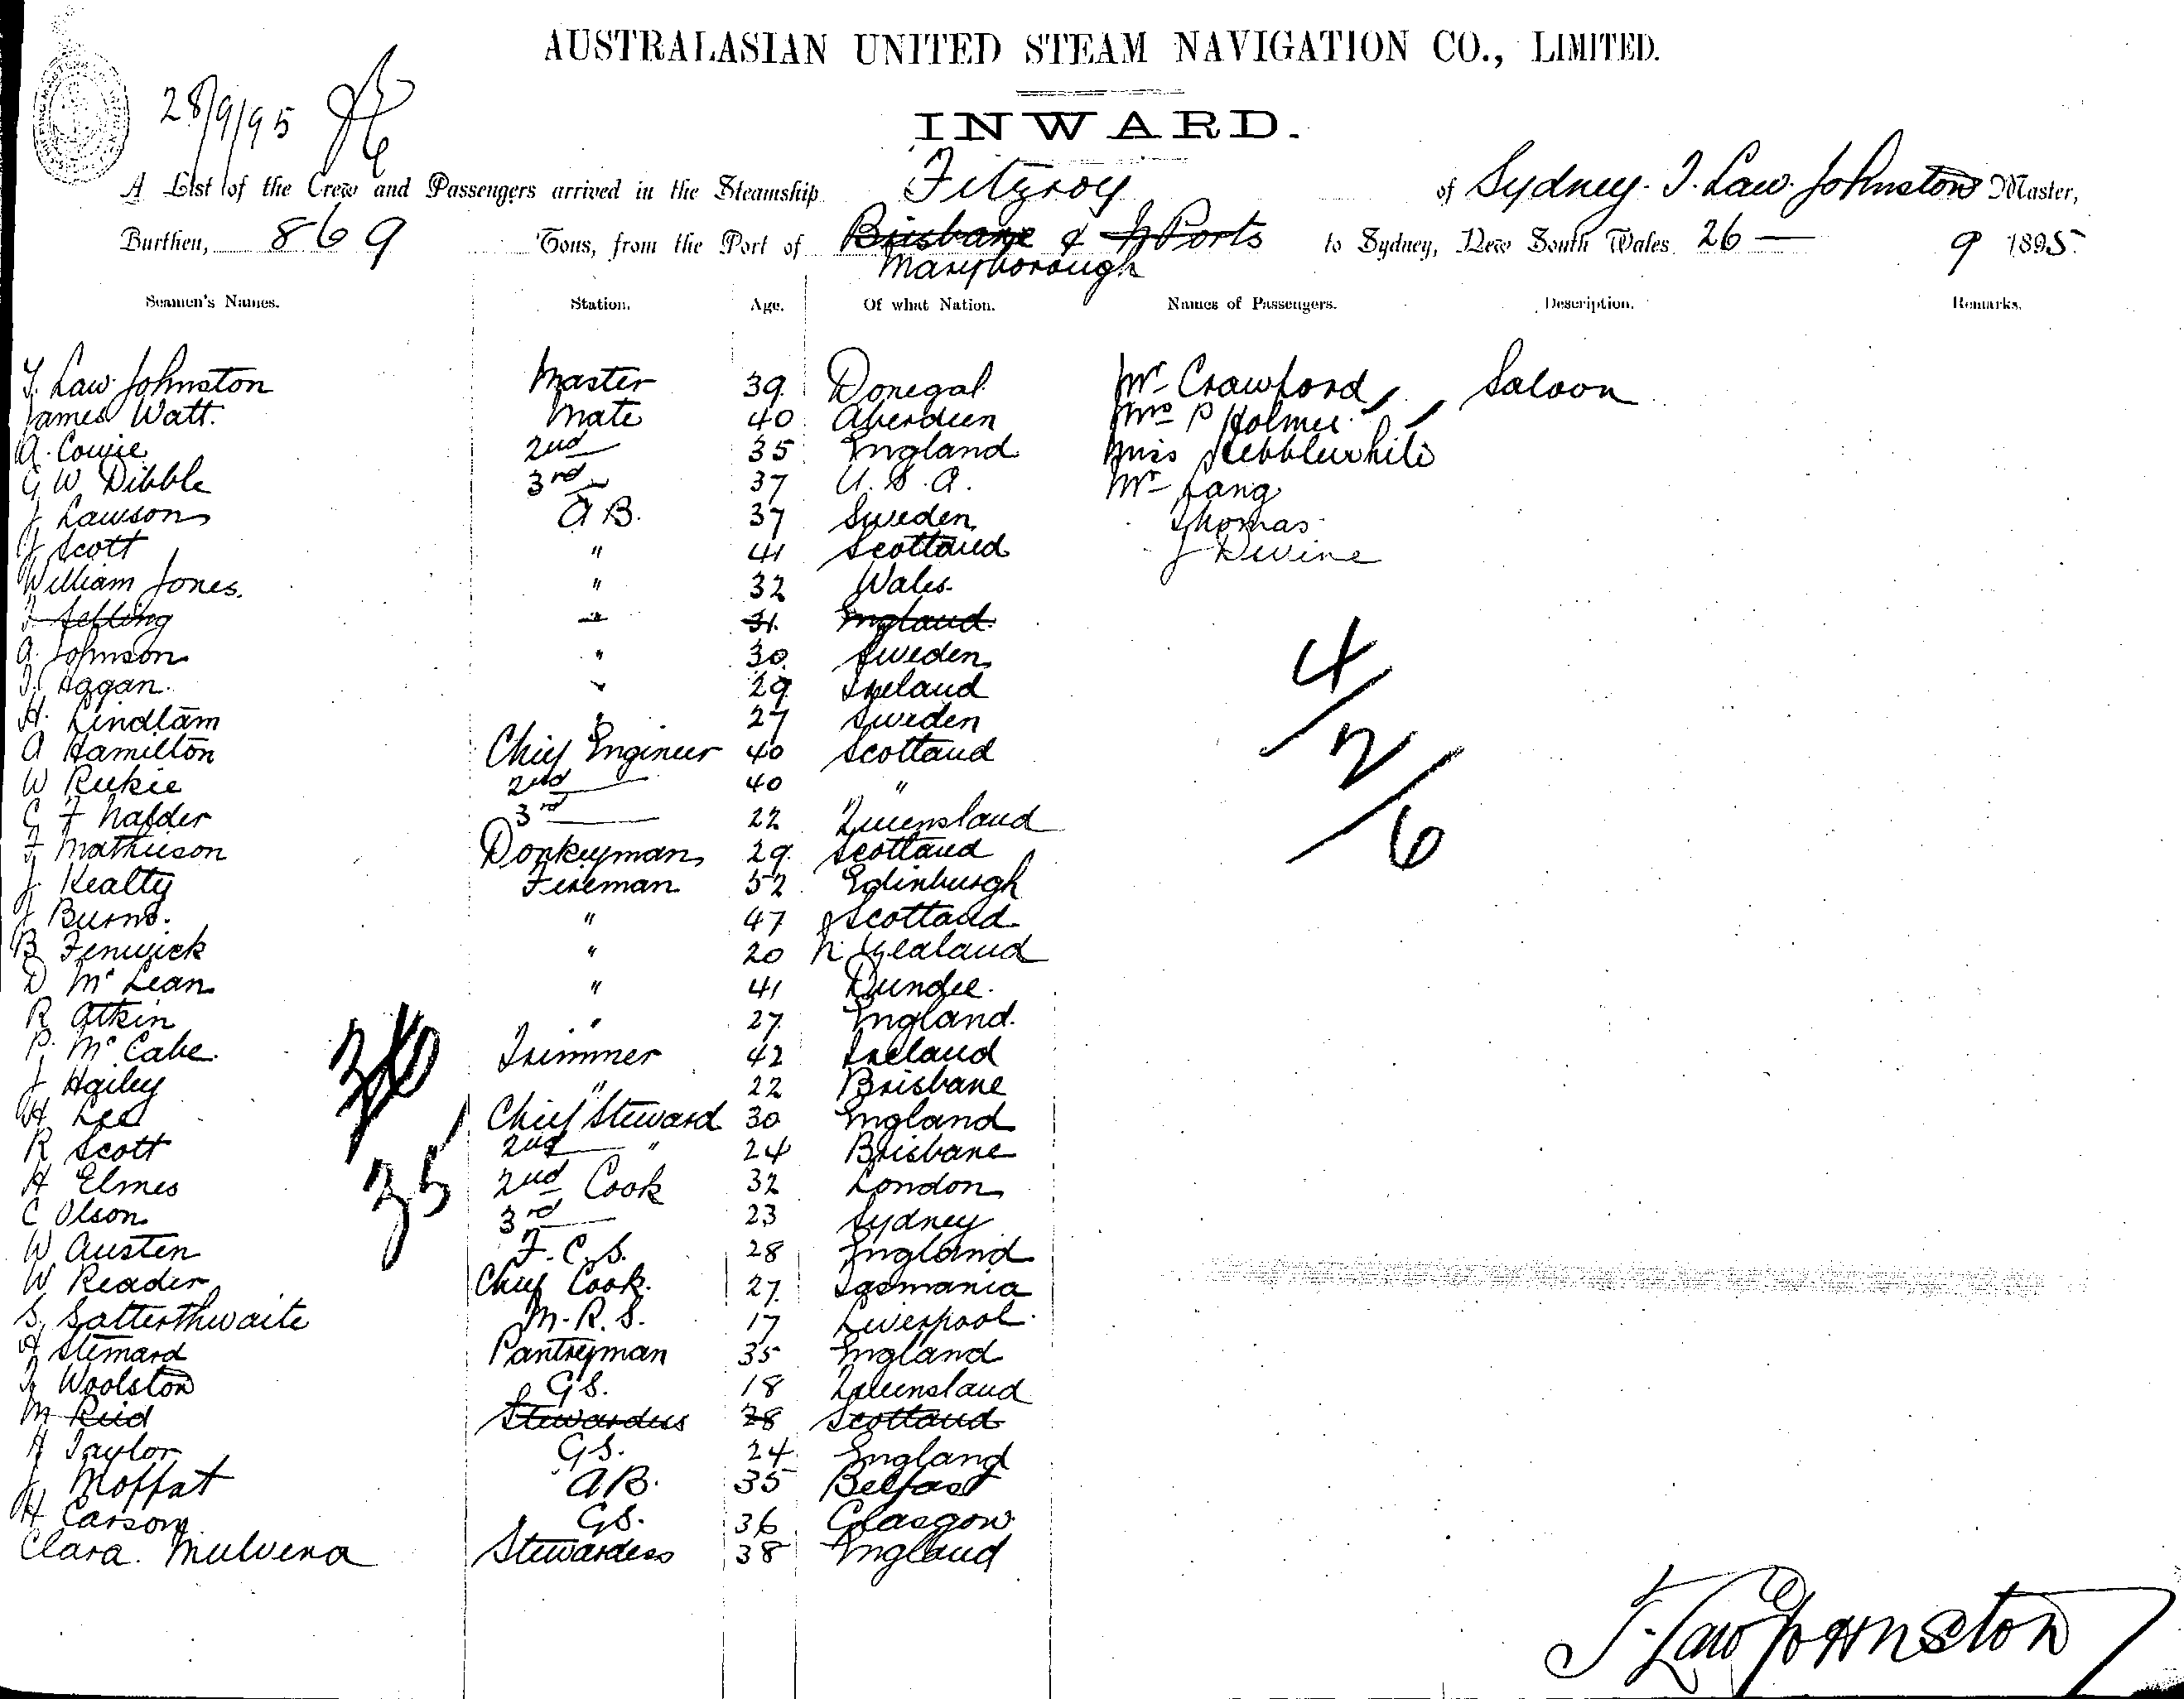 AUSTRALASIAN UNITED STEAM NAVIGATION CO., LIMITED.
28/9/95
INWARD.
A List of the Crew and Passengers arrived in the Steamship Fitzroy of Sydney. T. Law Johnston Master,
Burthen, 869 Tons, from the Port of Brisbane & N Ports to Sydney, New South Wales. 26 — 9 1895.
Maryborough
Seamen's Names. Station. Age. Of what Nation. Names of Passengers. Description. Remarks.
T. Law Johnston Master 39 Donegal Mr Crawford Saloon
James Watt. Mate 40 Aberdeen Mrs P Holmes
A. Cowie 2nd 35 England Miss Hebblewhite
G W Dibble 3rd 37 U.S.A. Mr Lang
J Lawson AB. 37 Sweden Thomas
J Scott " 41 Scotland J Devine
William Jones. " 32 Wales
" 31 England
A. Johnson " 30 Sweden
Hagan " 29 Ireland
H. Lindlam " 27 Sweden
A Hamilton Chief Engineer 40 Scotland
W Reekie 2nd 40 "
C F Nalder 3rd 22 Queensland
F Mathieson Donkeyman 29 Scotland
J. Kealty Fireman 52 Edinburgh
J Burns. " 47 Scotland
B Fenwick " 20 N. Zealand
D McLean " 41 Dundee.
R Atkin " 27 England.
P. McCabe. Trimmer 42 Ireland
J Hailey " 22 Brisbane
H Lee Chief Steward 30 England
R Scott 2nd " 24 Brisbane
H Elmes 2nd Cook 32 London
C Olson 3rd 23 Sydney
W Austen F.C.S. 28 England
W Reader Chief Cook. 27 Tasmania
S. Satterthwaite M.R.S. 17 Liverpool
Stemard Pantryman 35 England
T. Woolston GS. 18 Queensland
M Reid Stewardess 28 Scotland
H Taylor GS. 24 England
J. Moffat AB. 35 Belfast
H Carson GS. 36 Glasgow
Clara. Mulvena Stewardess 38 England
4/2/6
35
T. Law Johnston